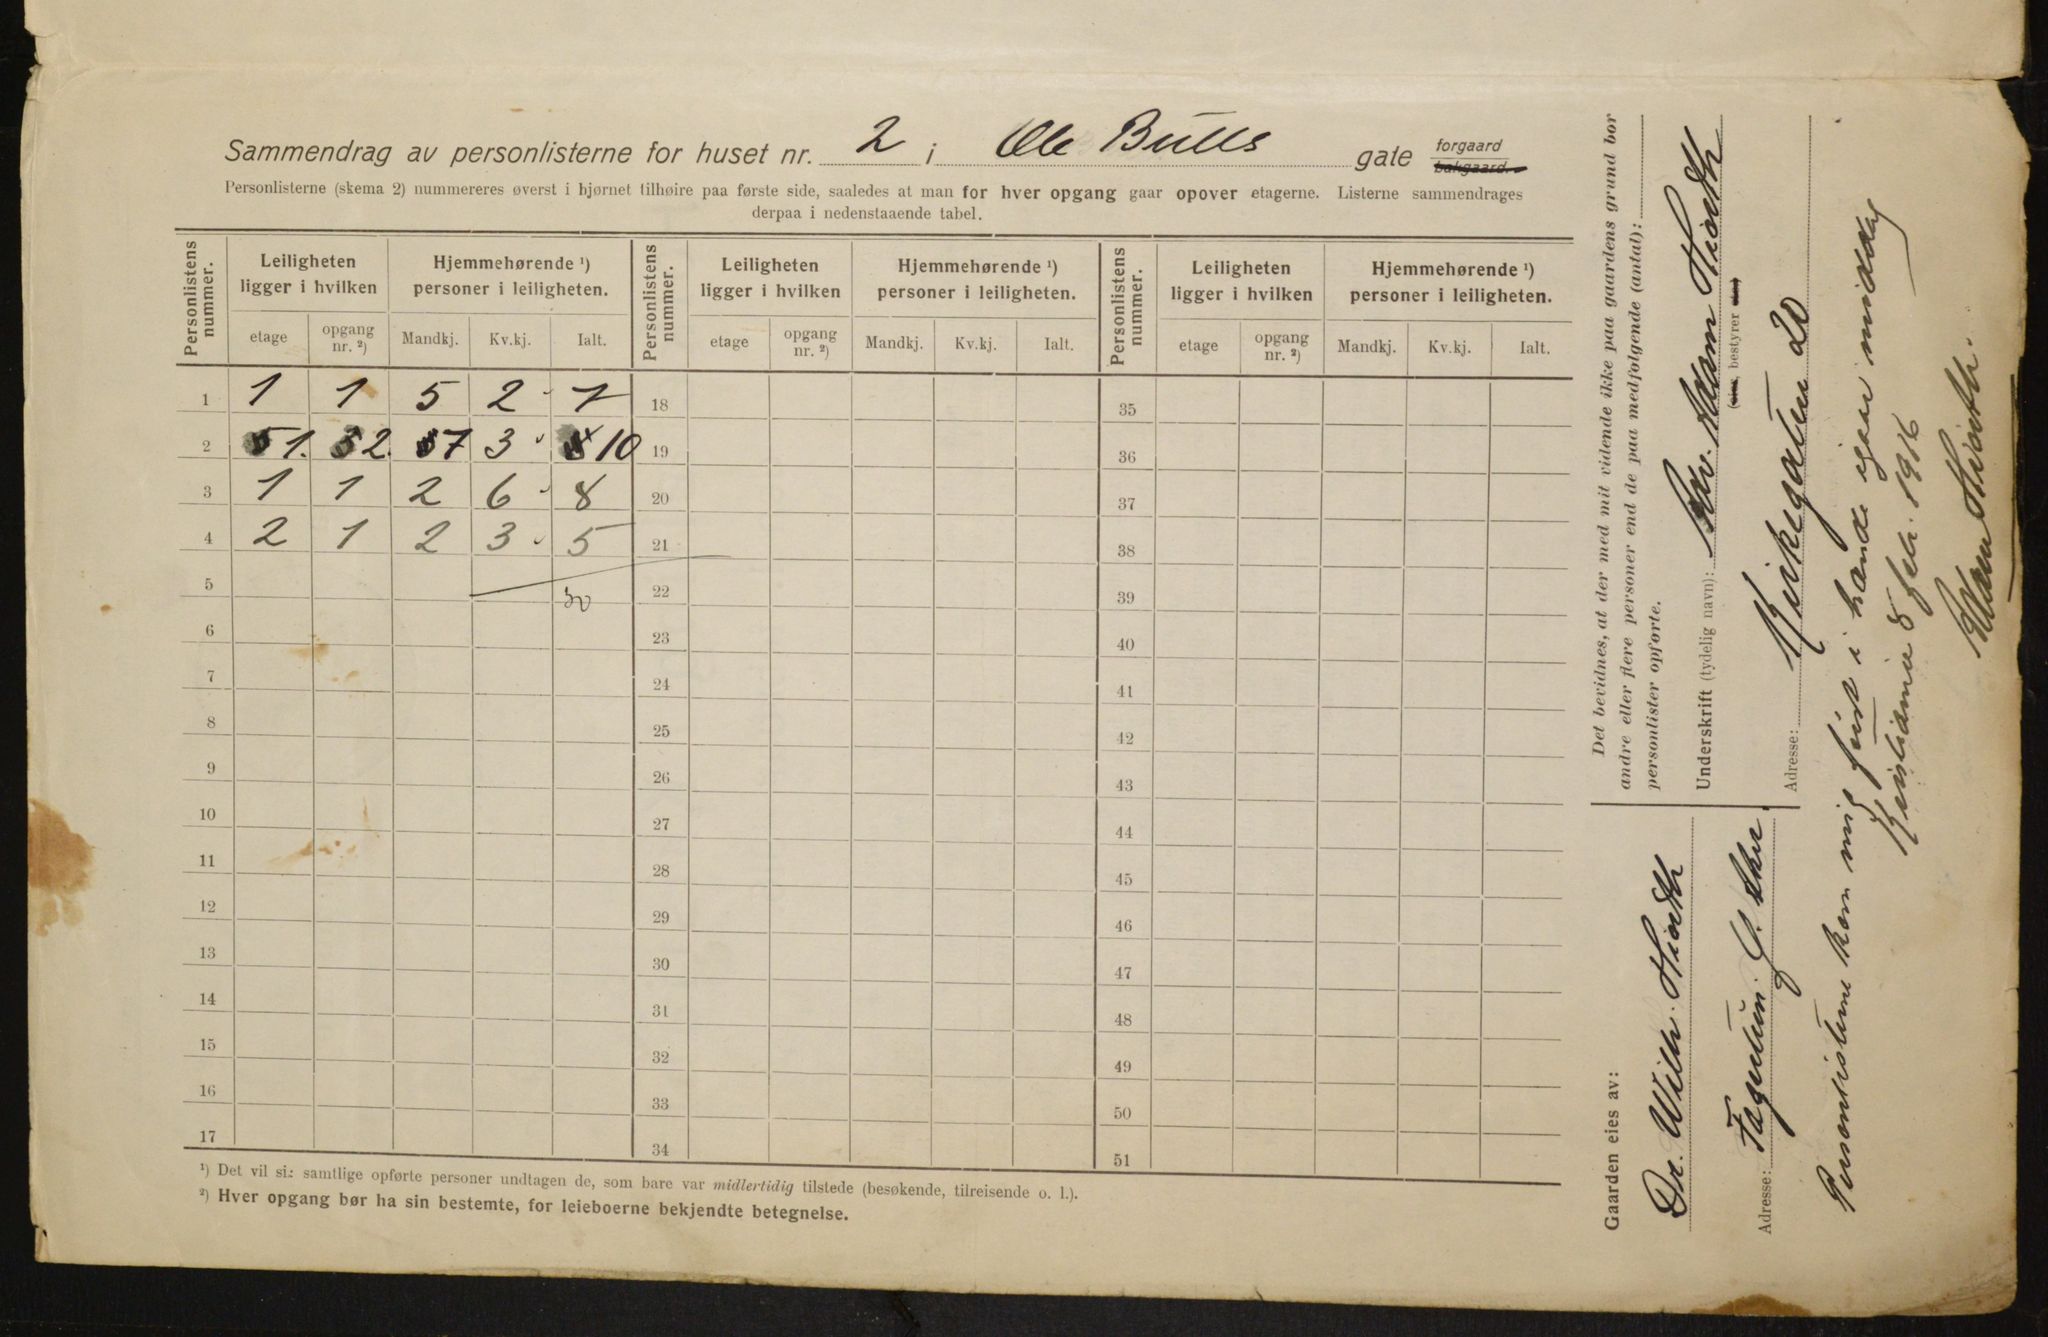 Sammendrag av personlisterne for huset nr. 2 i Ole Bulls gate forgaard
bakgaard.
Personlisterne (skema 2) nummereres øverst i hjørnet tilhøire paa første side, saaledes at man for hver opgang gaar opover etagerne. Listerne sammendrages
derpaa i nedenstaaende tabel.
Personlistens nummer. Leiligheten ligger i hvilken Hjemmehørende ¹) personer i leiligheten. Personlistens nummer. Leiligheten ligger i hvilken Hjemmehørende ¹) personer i leiligheten. Personlistens nummer. Leiligheten ligger i hvilken Hjemmehørende ¹) personer i leiligheten.
etage opgang nr. ²) Mandkj. Kv.kj. Ialt. etage opgang nr. ²) Mandkj. Kv.kj. Ialt. etage opgang nr. ²) Mandkj. Kv.kj. Ialt.
1 1 1 5 2 7 18 35
2 1. 2. 7 3 10 19 36
3 1 1 2 6 8 20 37
4 2 1 2 3 5 21 38
5 30 22 39
6 23 40
7 24 41
8 25 42
9 26 43
10 27 44
11 28 45
12 29 46
13 30 47
14 31 48
15 32 49
16 33 50
17 34 51
¹) Det vil si: samtlige opførte personer undtagen de, som bare var midlertidig tilstede (besøkende, tilreisende o. l.).
²) Hver opgang bør ha sin bestemte, for leieboerne bekjendte betegnelse.
Det bevidnes, at der med mit vidende ikke paa gaardens grund bor
andre eller flere personer end de paa medfølgende (antal):
personlister opførte.
Underskrift (tydelig navn): Adv. Adam Hiorth
(eier, bestyrer
Adresse: Kirkegaten 20
Gaarden eies av:
Dr. Wilh. Hiorth
Adresse: Fagertun. V. Aker
Personlisterne kom mig først i hænde igaar middag
Kristiania 8 febr. 1916
Adam Hiorth.